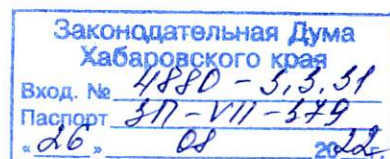 Законодательная Дума
Хабаровского края
Вход. № 4880 - 3.3.31
Паспорт ЗП - VII - 379
« 26 » 08 2022 г.